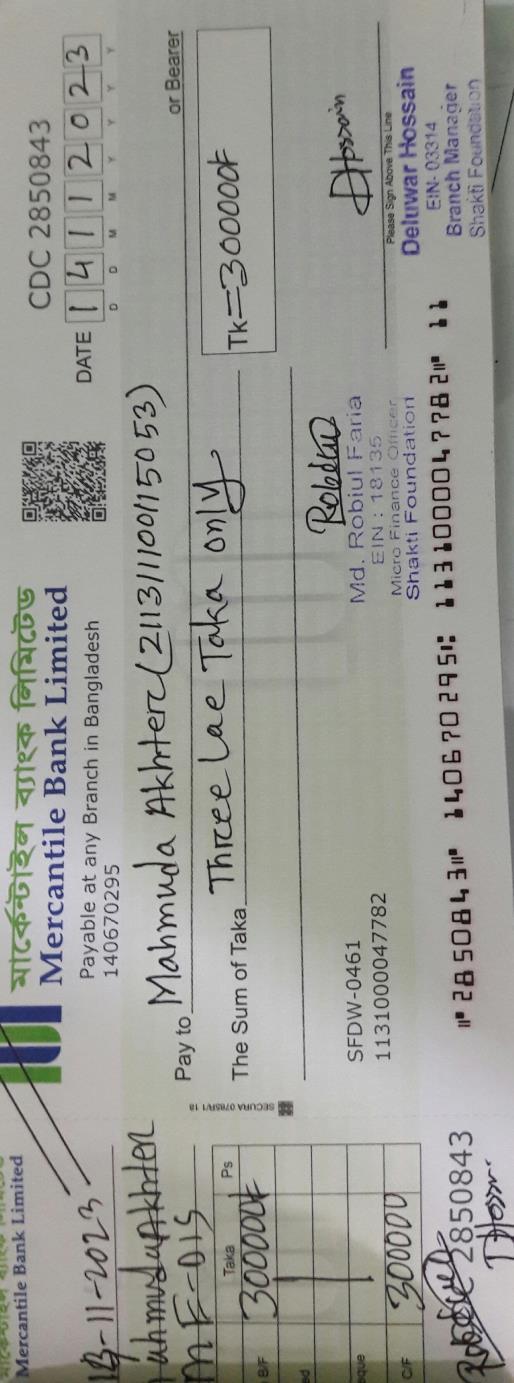 Mercantile Bank Limited
14-11-2023
Mahmuda Akhter
MF-DIS
Taka Ps
B/F 300000/-
C/F 300000
2850843
মার্কেন্টাইল ব্যাংক লিমিটেড
Mercantile Bank Limited
Payable at any Branch in Bangladesh
140670295
CDC 2850843
DATE 1 4 1 1 2 0 2 3
D D M M Y Y Y Y
Pay to Mahmuda Akhter (211311100115053) or Bearer
The Sum of Taka Three Lac Taka only
Tk=300000/-
SFDW-0461
1131000047782
Robiul
Md. Robiul Faria
EIN : 18135
Micro Finance Officer
Shakti Foundation
DHossain
Please Sign Above This Line
Deluwar Hossain
EIN- 03314
Branch Manager
Shakti Foundation
⑈2850843⑈ 140670295⑆ 1131000047782⑈ 11